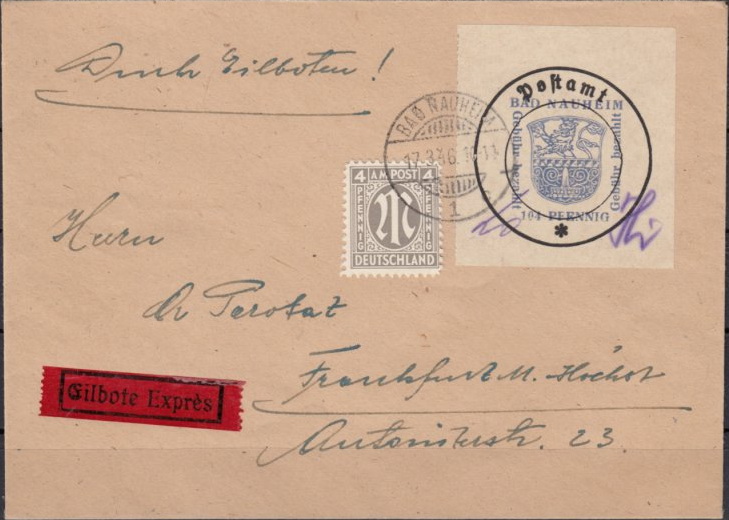 Durch Eilboten!
Postamt
BAD NAUHEIM
Gebühr bezahlt
Gebühr bezahlt
104 PFENNIG
*
BAD NAUHEIM
17.3.46. 10-11
1
4 AM POST 4
PFENNIG
PFENNIG
M
DEUTSCHLAND
Herrn
Dr Perokat
Eilbote Exprès
Frankfurt M. Höchst
Antoniterstr. 23.